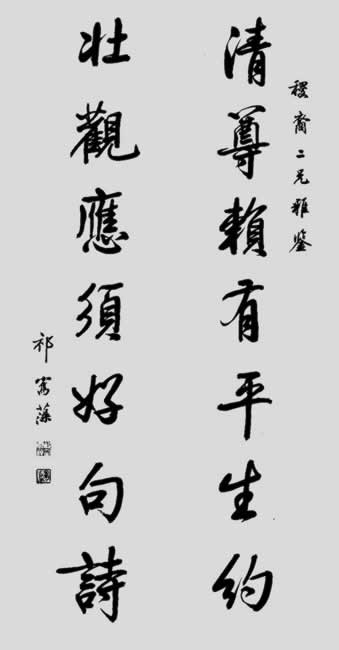 稷裔二兄雅鉴
清尊賴有平生約
壯觀應須好句詩
祁寯藻